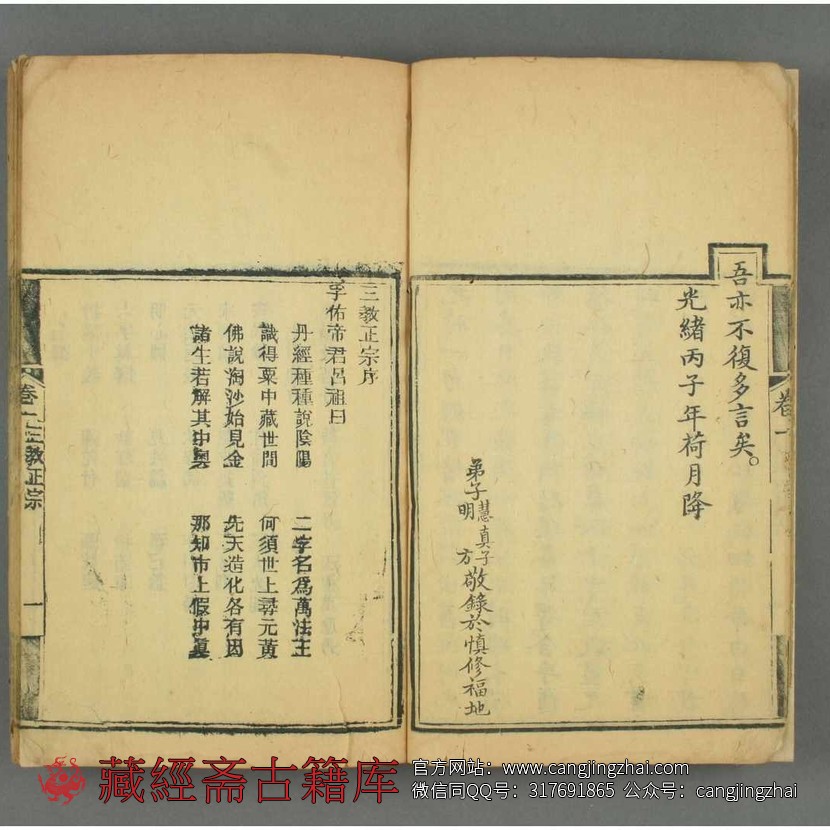 吾亦不復多言矣。
光緒丙子年荷月降
弟子慧真子明方敬錄於慎修福地
卷一
三教正宗序
孚佑帝君呂祖曰
丹經種種說陰陽 二字名為萬法王
識得粟中藏世間 何須世上尋元黃
佛說淘沙始見金 先天造化各有因
諸生若解其中奧 那知市上假中真
卷一 三教正宗 一
藏經斋古籍库
官方网站：www.cangjingzhai.com
微信同QQ号：317691865 公众号：cangjingzhai